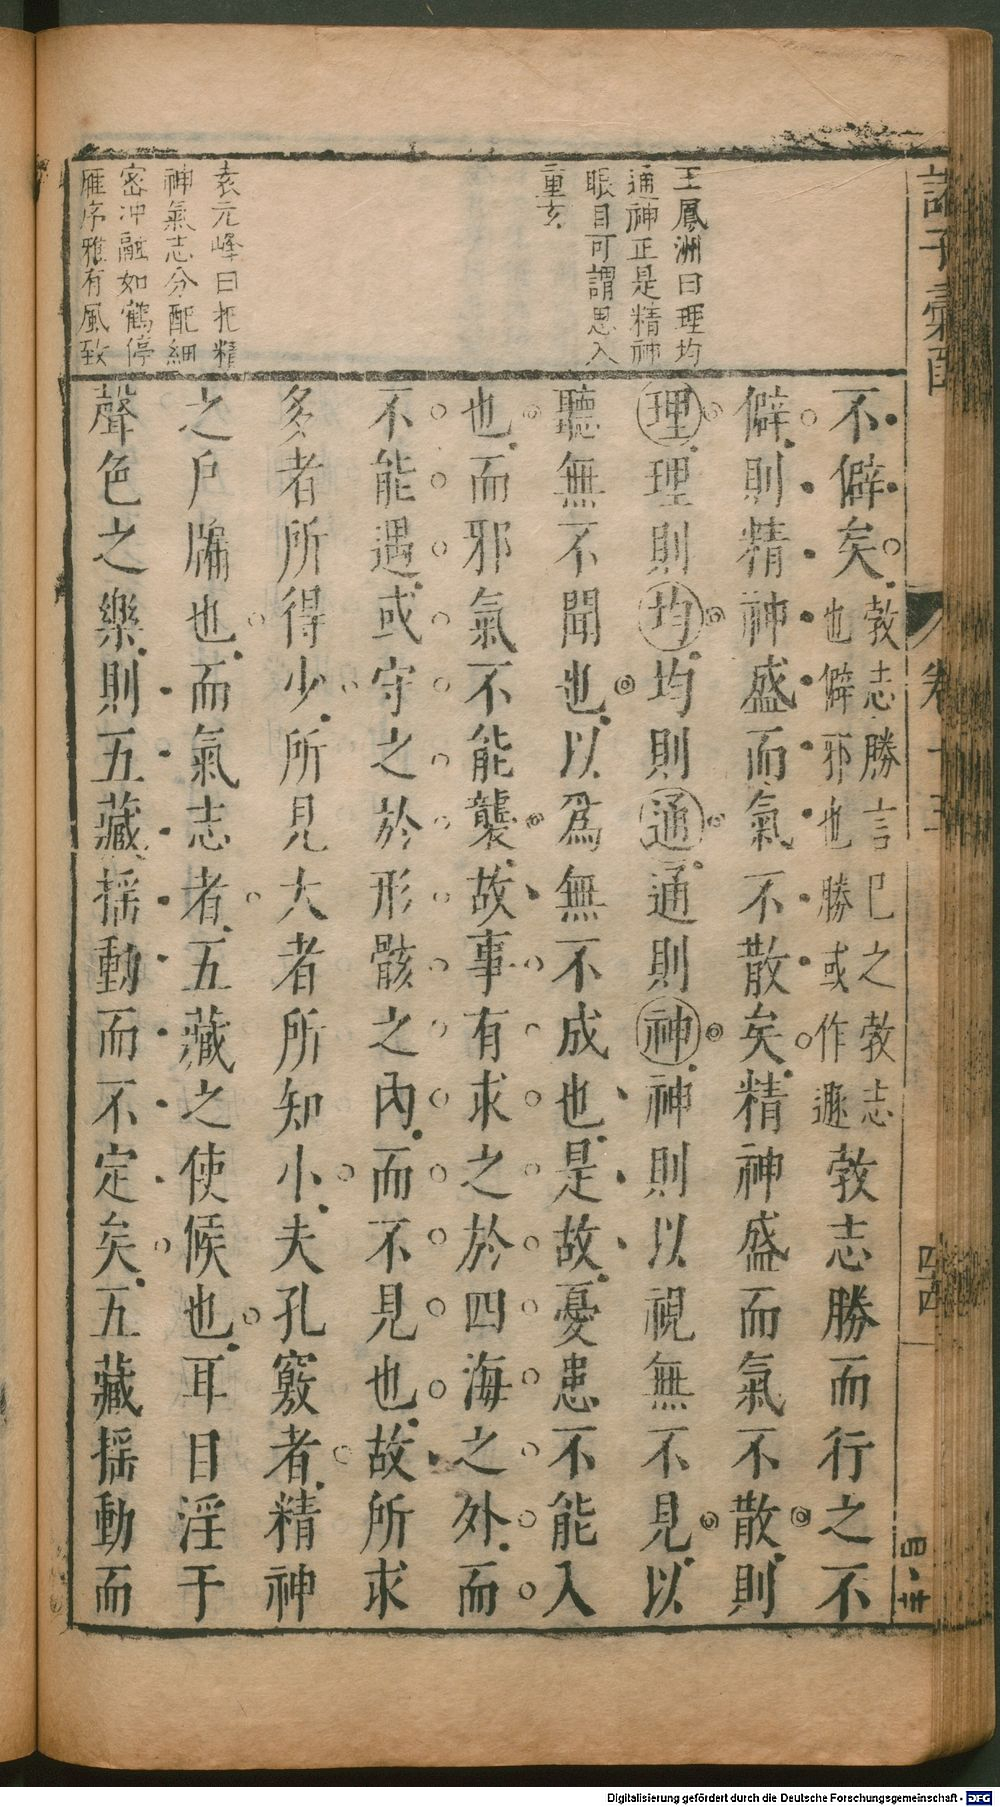 諸子彙函
卷十五
四十四
王鳳洲曰理均
通神正是精神
眼目可謂思入
重玄
袁元峰曰把精
神氣志分配細
密冲融如鶴停
雁序雅有風致
不僻矣敦志勝言已之敦志也僻邪也勝或作遯敦志勝而行之不
僻則精神盛而氣不散矣精神盛而氣不散則
理理則均均則通通則神神則以視無不見以
聽無不聞也以爲無不成也是故憂患不能入
也而邪氣不能襲故事有求之於四海之外而
不能遇或守之於形骸之內而不見也故所求
多者所得少所見大者所知小夫孔竅者精神
之戶牖也而氣志者五藏之使候也耳目淫于
聲色之樂則五藏搖動而不定矣五藏搖動而
Digitalisierung gefördert durch die Deutsche Forschungsgemeinschaft - DFG